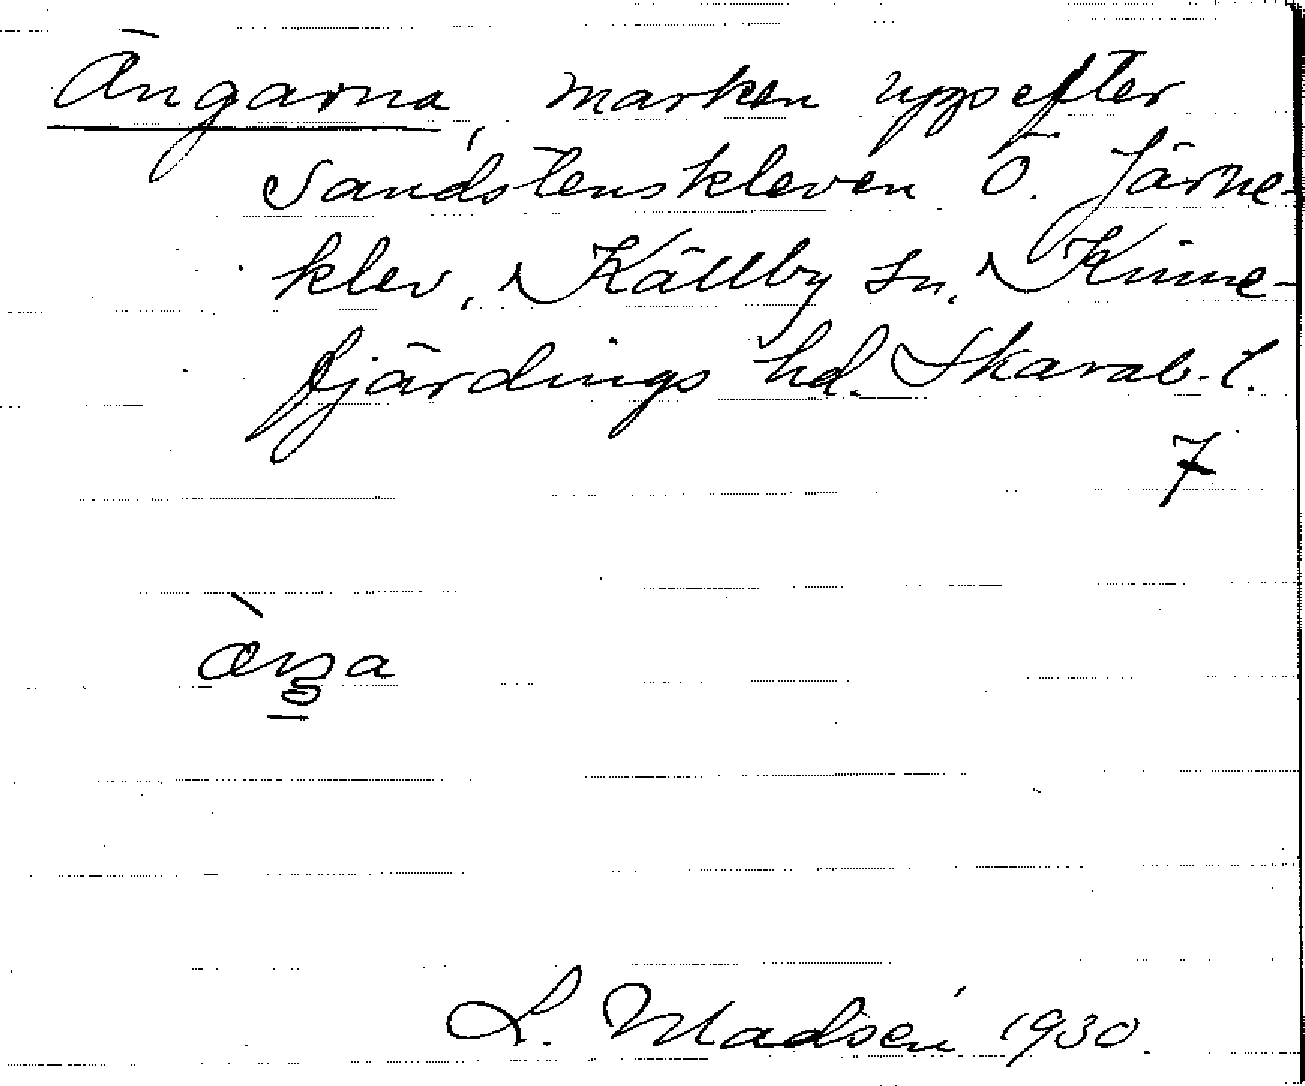 Ängarna, marken uppefter
Sandstenskleven Ö. Järne-
klev, Källby sn, Kinne-
fjärdings hd. Skarab. l.
7
L. Madsén 1930.